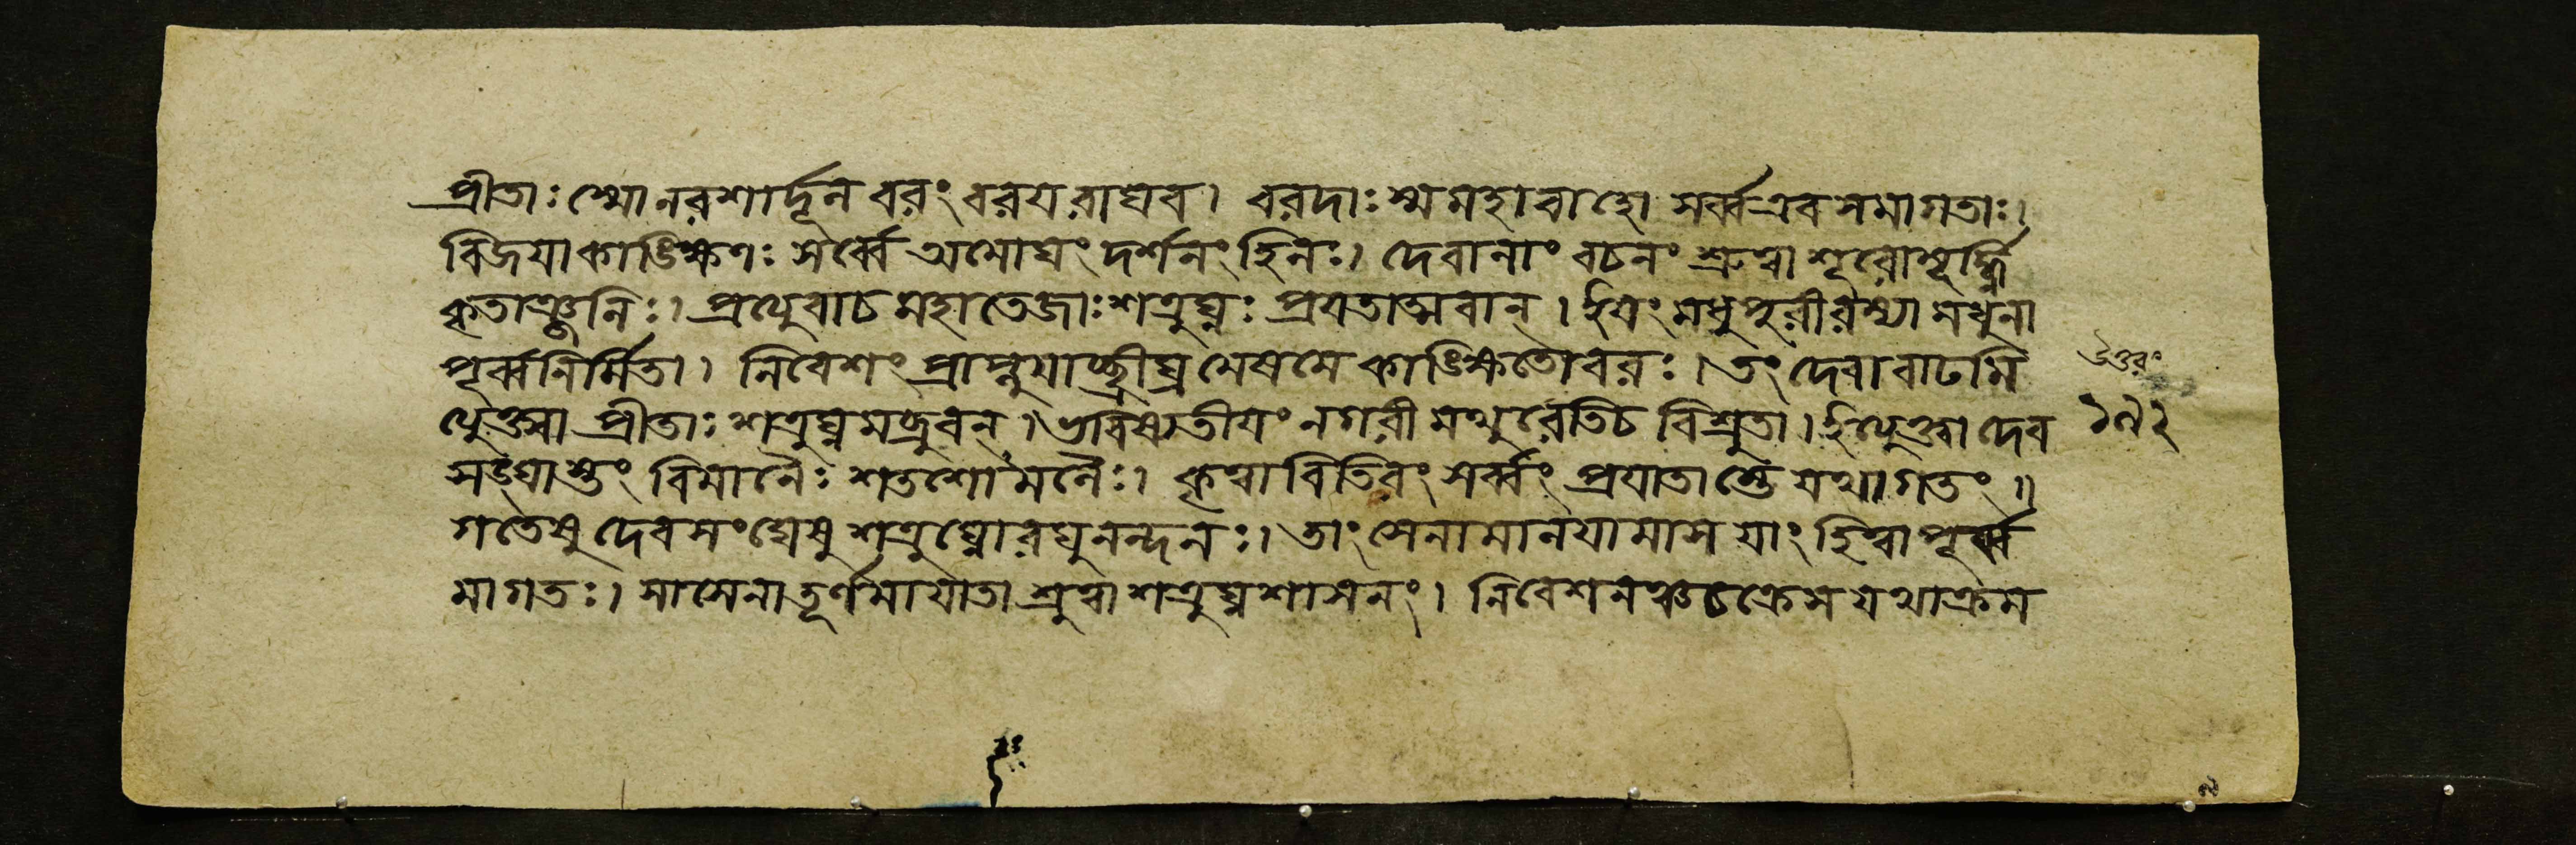 প্রীতাঃ স্মো নরশার্দ্দূল বরং বরয রাঘব। বরদাঃ স্ম মহাবাহো সর্ব্ব এব সমাগতাঃ।
বিজযাকাঙ্ক্ষিণঃ সর্ব্বে অমোঘং দর্শনং হি নঃ। দেবানাং বচনং শ্রুত্বা শূরো মূর্দ্ধ্নি
কৃতাঞ্জলিঃ। প্রত্যুবাচ মহাতেজাঃ শত্রুঘ্নঃ প্রযতাত্মবান্। ইযং মধুপুরী রম্যা মধুনা
পূর্ব্বনির্মিতা। নিবেশং প্রাপ্নুযাচ্ছীঘ্রমেষ মে কাঙ্ক্ষিতো বরঃ। তং দেবা বাঢমি
ত্যুক্ত্বা প্রীতাঃ শত্রুঘ্নমব্রুবন্। ভবিষ্যতীযং নগরী মথুরেতি চ বিশ্রুতা। ইত্যুক্ত্বা দেব
সঙ্ঘাস্তং বিমানৈঃ শতশোমলৈঃ। কৃত্বা বিতিবং সর্ব্বং প্রযাতাস্তে যথাগতং॥
গতেষু দেবসংঘেষু শত্রুঘ্নো রঘুনন্দনঃ। তাং সেনামানযামাস যাং হিত্বা পূর্ব্ব
মাগতঃ। সা সেনা তূর্ণমাযাতা শ্রুত্বা শত্রুঘ্নশাসনং। নিবেশনঞ্চ চক্রে স যথাক্রম
উত্তরং
১৭২